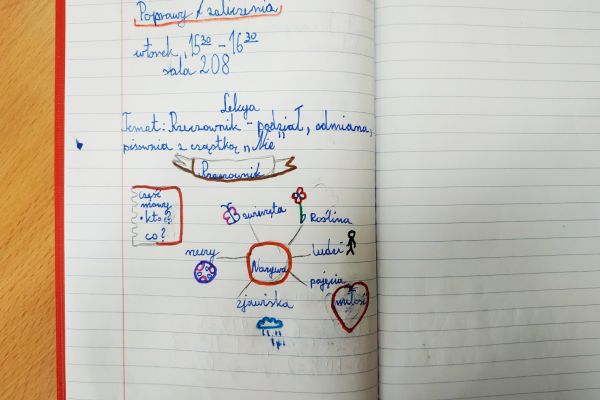 Poprawy / zaliczenia
wtorek, 15³⁰ - 16³⁰
sala 208
Lekcja
Temat: Rzeczownik - podział, odmiana,
pisownia z cząstką „Nie"
Rzeczownik
część
mowy
• kto?
co?
zwierzęta
Roślina
rzeczy
ludzi
Nazywa
pojęcia
miłość
zjawiska